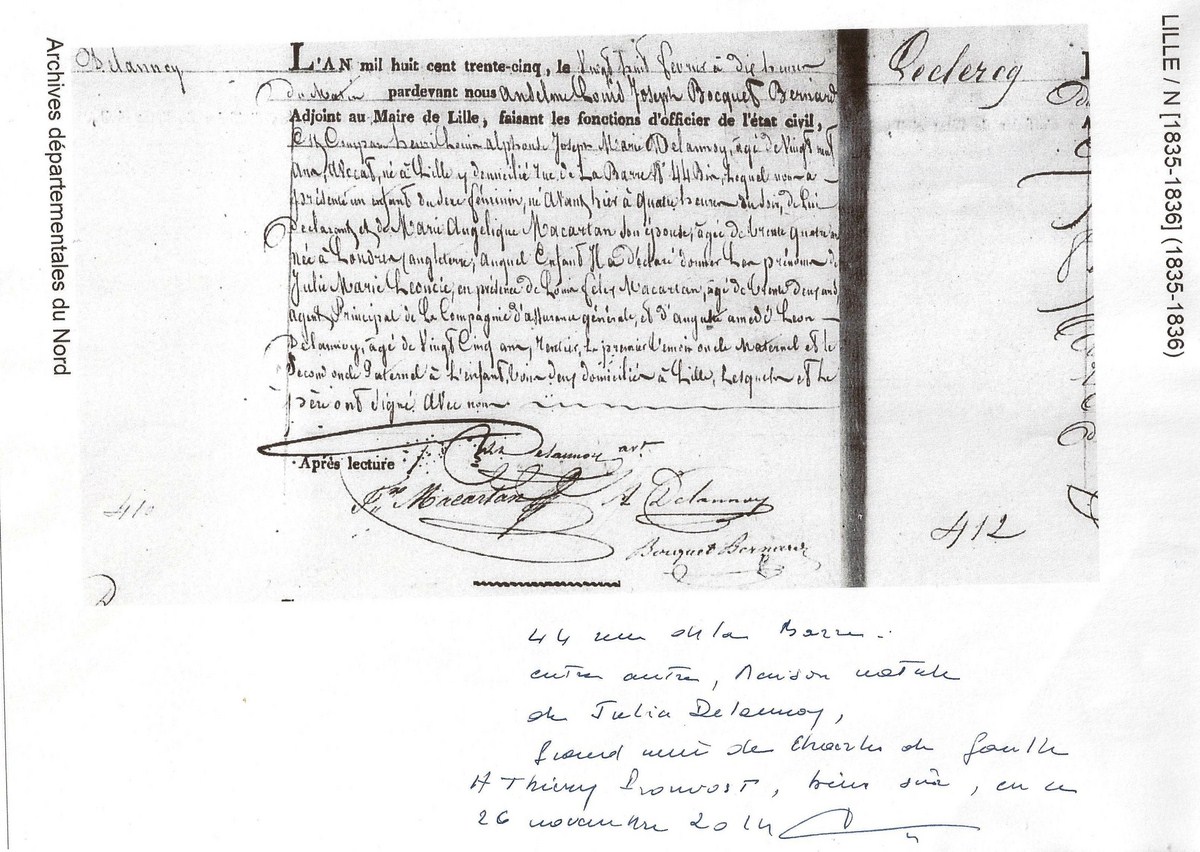 LILLE / N [1835-1836] (1835-1836)
Archives départementales du Nord
Delannoy
L'AN mil huit cent trente-cinq, le Vingt huit février à dix heures
du Matin pardevant nous Anselme Louis Joseph Bocquet Bernard
Adjoint au Maire de Lille, faisant les fonctions d'officier de l'état civil,
Est Comparu henri Louis alphonse Joseph Marie Delannoy, âgé de Vingt neuf
Ans, Avocat, né à Lille y domicilié rue de La Barre N° 44 Bis, Lequel nous a
présenté un enfant du sexe féminin, né Avant hier à quatre heures du Soir, de Lui
Déclarant, et de Marie Angélique Macartan son épouse, agée de trente quatre ans
née à Londres (angleterre), auquel Enfant Il a déclaré donner Les prénoms de
Julie Marie Léoncie, en présence de Louis Félix Macartan, âgé de trente deux ans
agent Principal de La Compagnie d'assurance générale, et d'auguste amedé Leon
Delannoy, âgé de Vingt Cinq ans, rentier, Le premier temoin oncle Maternel et le
Second oncle Paternel à L'enfant, tous deux domiciliés à Lille, Lesquels et Le
père ont signé Avec nous
Après lecture
Delannoy avt
Macartan
A Delannoy
Bocquet Bernard
410
Leclercq
412
44 rue de la Barre.
entre autre, Maison natale
de Julia Delannoy,
grand mère de Charles de Gaulle
A Thierry Prouvost, bien sûr, en ce
26 novembre 2014